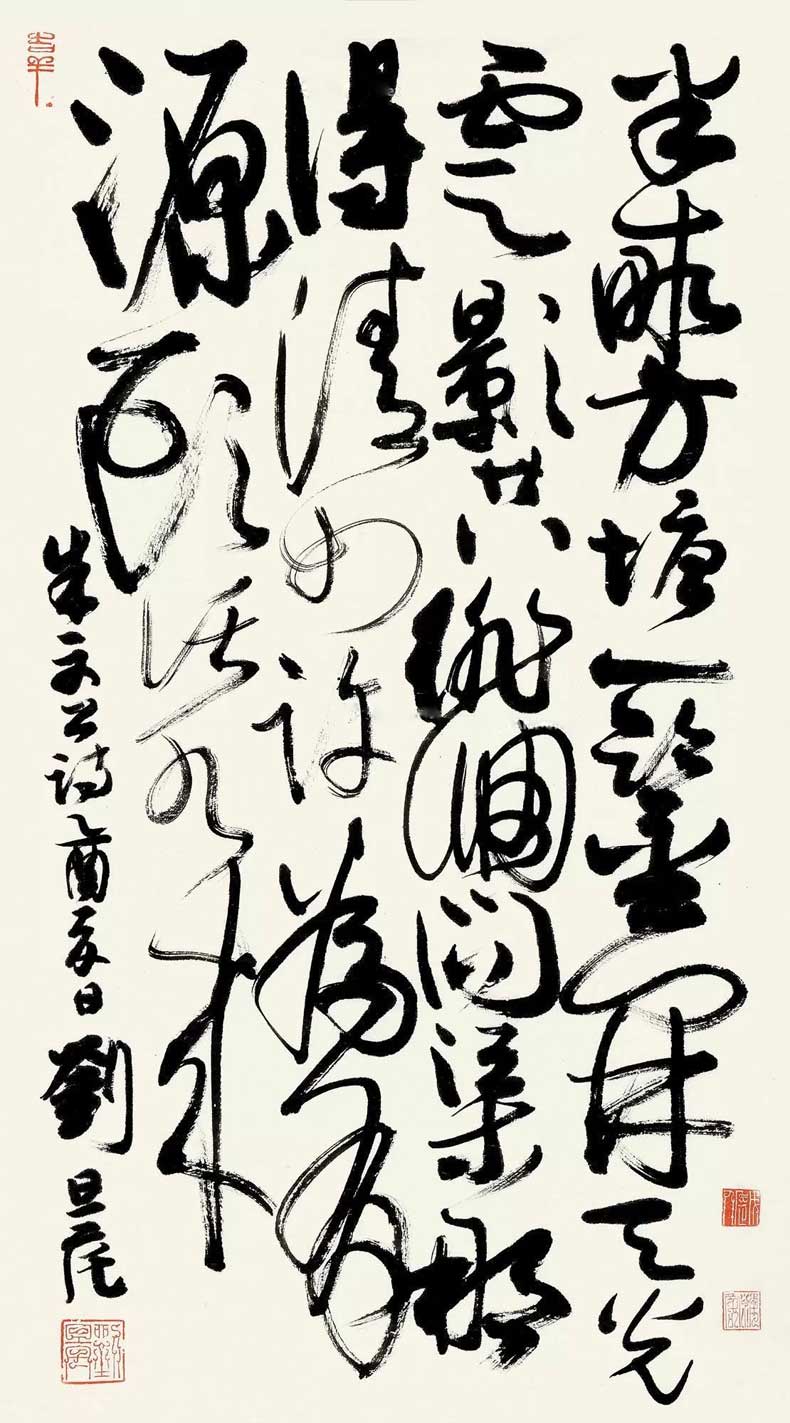 半畝方塘一鑒開天光
雲影共徘徊問渠那
得清如許為有
源頭活水來
朱文公詩乙酉年冬日劉旦宅